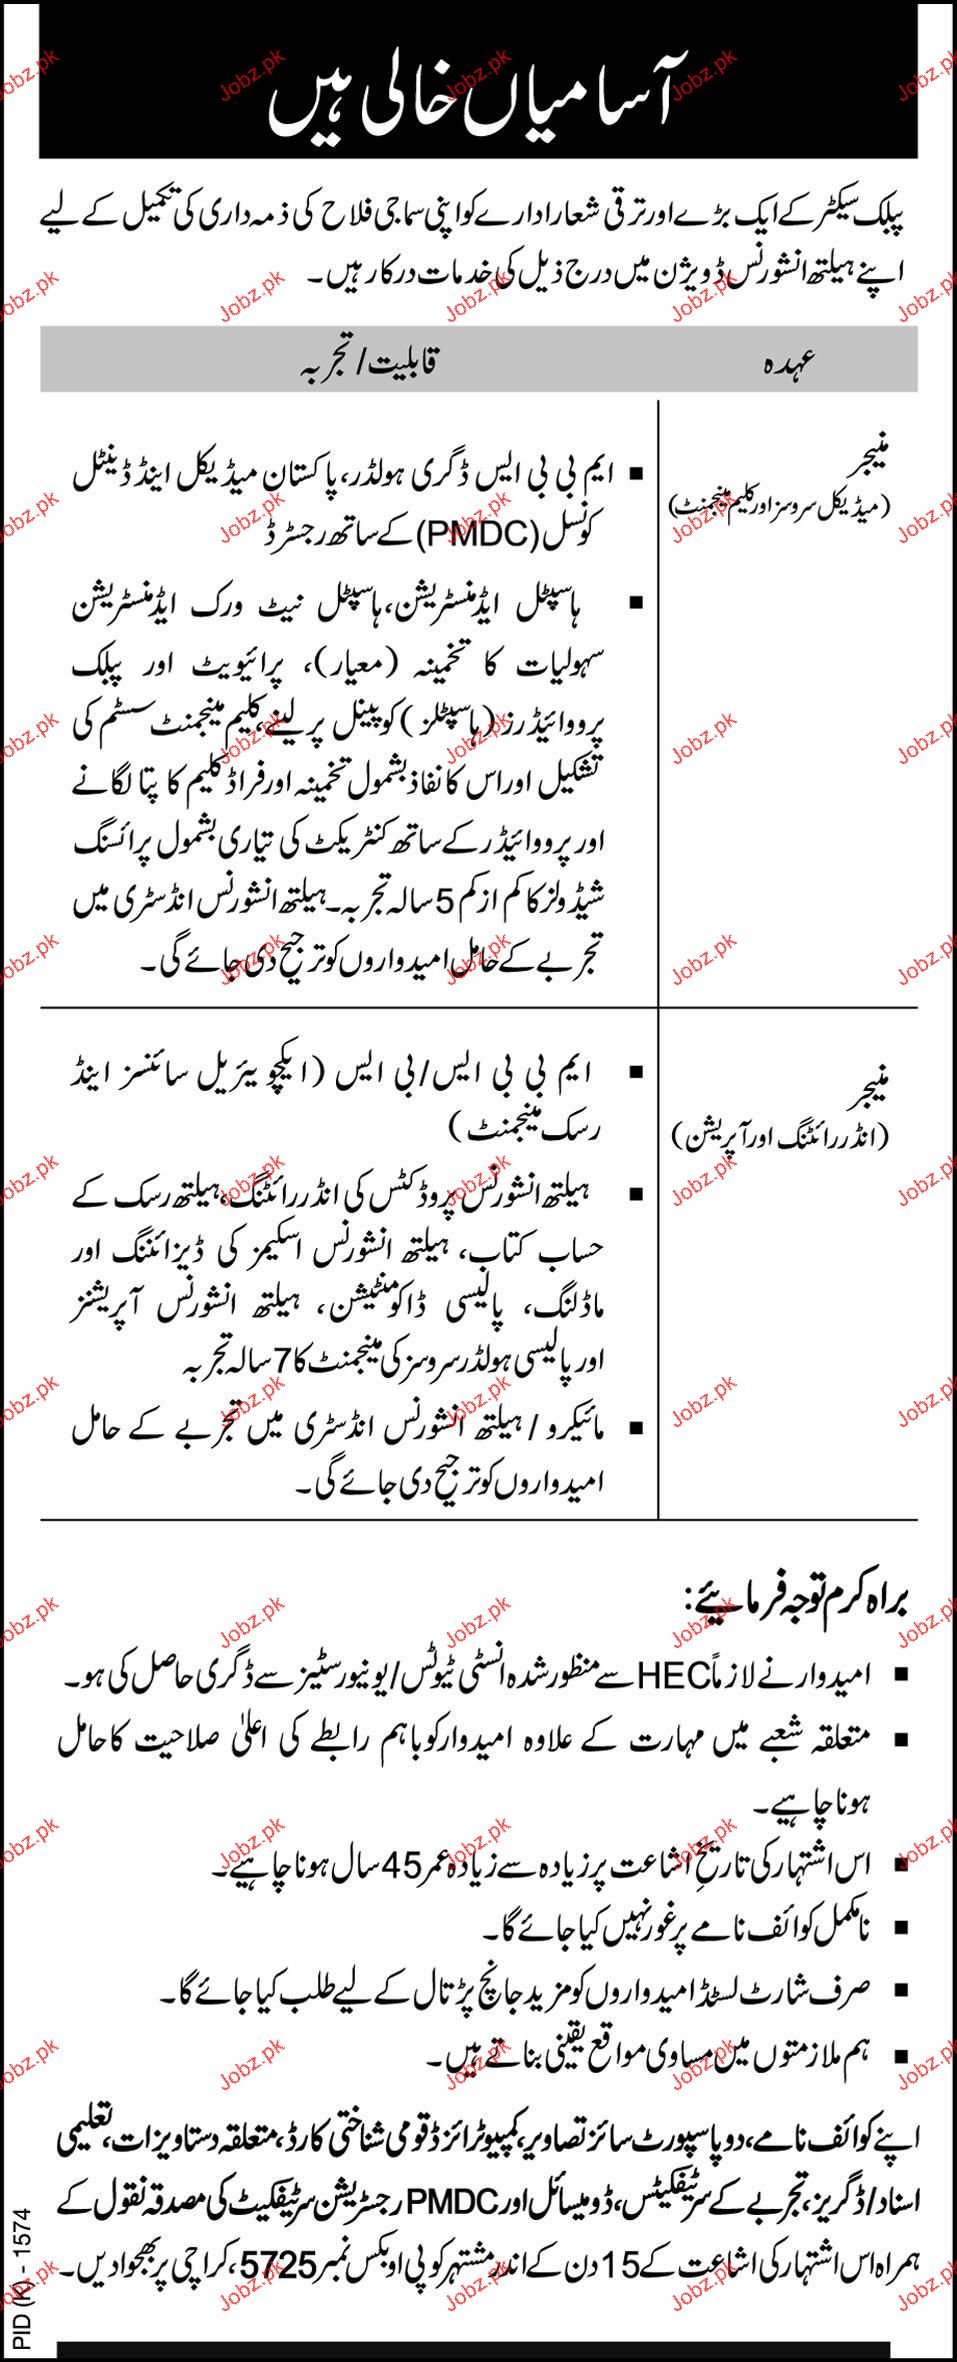 آسامیاں خالی ہیں
پبلک سیکٹر کے ایک بڑے اور ترقی شعار ادارے کو اپنی سماجی فلاح کی ذمہ داری کی تکمیل کے لیے
اپنے ہیلتھ انشورنس ڈویژن میں درج ذیل کی خدمات درکار ہیں۔
عہدہ
قابلیت/تجربہ
منیجر
(میڈیکل سروسز اور کلیم مینجمنٹ)
■ ایم بی بی ایس ڈگری ہولڈر، پاکستان میڈیکل اینڈ ڈینٹل
کونسل (PMDC) کے ساتھ رجسٹرڈ
■ ہاسپٹل ایڈمنسٹریشن، ہاسپٹل نیٹ ورک ایڈمنسٹریشن
سہولیات کا تخمینہ (معیار)، پرائیویٹ اور پبلک
پرووائیڈرز (ہاسپٹلز) کو پینل پر لینے، کلیم مینجمنٹ سسٹم کی
تشکیل اور اس کا نفاذ بشمول تخمینہ اور فراڈ کلیم کا پتا لگانے
اور پرووائیڈر کے ساتھ کنٹریکٹ کی تیاری بشمول پرائسنگ
شیڈولز کا کم از کم 5 سالہ تجربہ۔ ہیلتھ انشورنس انڈسٹری میں
تجربے کے حامل امیدواروں کو ترجیح دی جائے گی۔
منیجر
(انڈر رائٹنگ اور آپریشن)
■ ایم بی بی ایس/بی ایس (ایکچویریل سائنسز اینڈ
رسک مینجمنٹ)
■ ہیلتھ انشورنس پروڈکٹس کی انڈر رائٹنگ، ہیلتھ رسک کے
حساب کتاب، ہیلتھ انشورنس اسکیمز کی ڈیزائننگ اور
ماڈلنگ، پالیسی ڈاکومنٹیشن، ہیلتھ انشورنس آپریشنز
اور پالیسی ہولڈر سروسز کی مینجمنٹ کا 7 سالہ تجربہ
■ مائیکرو / ہیلتھ انشورنس انڈسٹری میں تجربے کے حامل
امیدواروں کو ترجیح دی جائے گی۔
براہ کرم توجہ فرمایئے:
■ امیدوار نے لازماً HEC سے منظور شدہ انسٹی ٹیوٹس/یونیورسٹیز سے ڈگری حاصل کی ہو۔
■ متعلقہ شعبے میں مہارت کے علاوہ امیدوار کو باہم رابطے کی اعلیٰ صلاحیت کا حامل
ہونا چاہیے۔
■ اس اشتہار کی تاریخِ اشاعت پر زیادہ سے زیادہ عمر 45 سال ہونا چاہیے۔
■ نامکمل کوائف نامے پر غور نہیں کیا جائے گا۔
■ صرف شارٹ لسٹڈ امیدواروں کو مزید جانچ پڑتال کے لیے طلب کیا جائے گا۔
■ ہم ملازمتوں میں مساوی مواقع یقینی بناتے ہیں۔
اپنے کوائف نامے، دو پاسپورٹ سائز تصاویر، کمپیوٹرائزڈ قومی شناختی کارڈ، متعلقہ دستاویزات، تعلیمی
اسناد/ڈگریز، تجربے کے سرٹیفکیٹس، ڈومیسائل اور PMDC رجسٹریشن سرٹیفکیٹ کی مصدقہ نقول کے
ہمراہ اس اشتہار کی اشاعت کے 15 دن کے اندر مشتہر کو پی او بکس نمبر 5725، کراچی پر بھجوا دیں۔
PID (K) - 1574
Jobz.pk